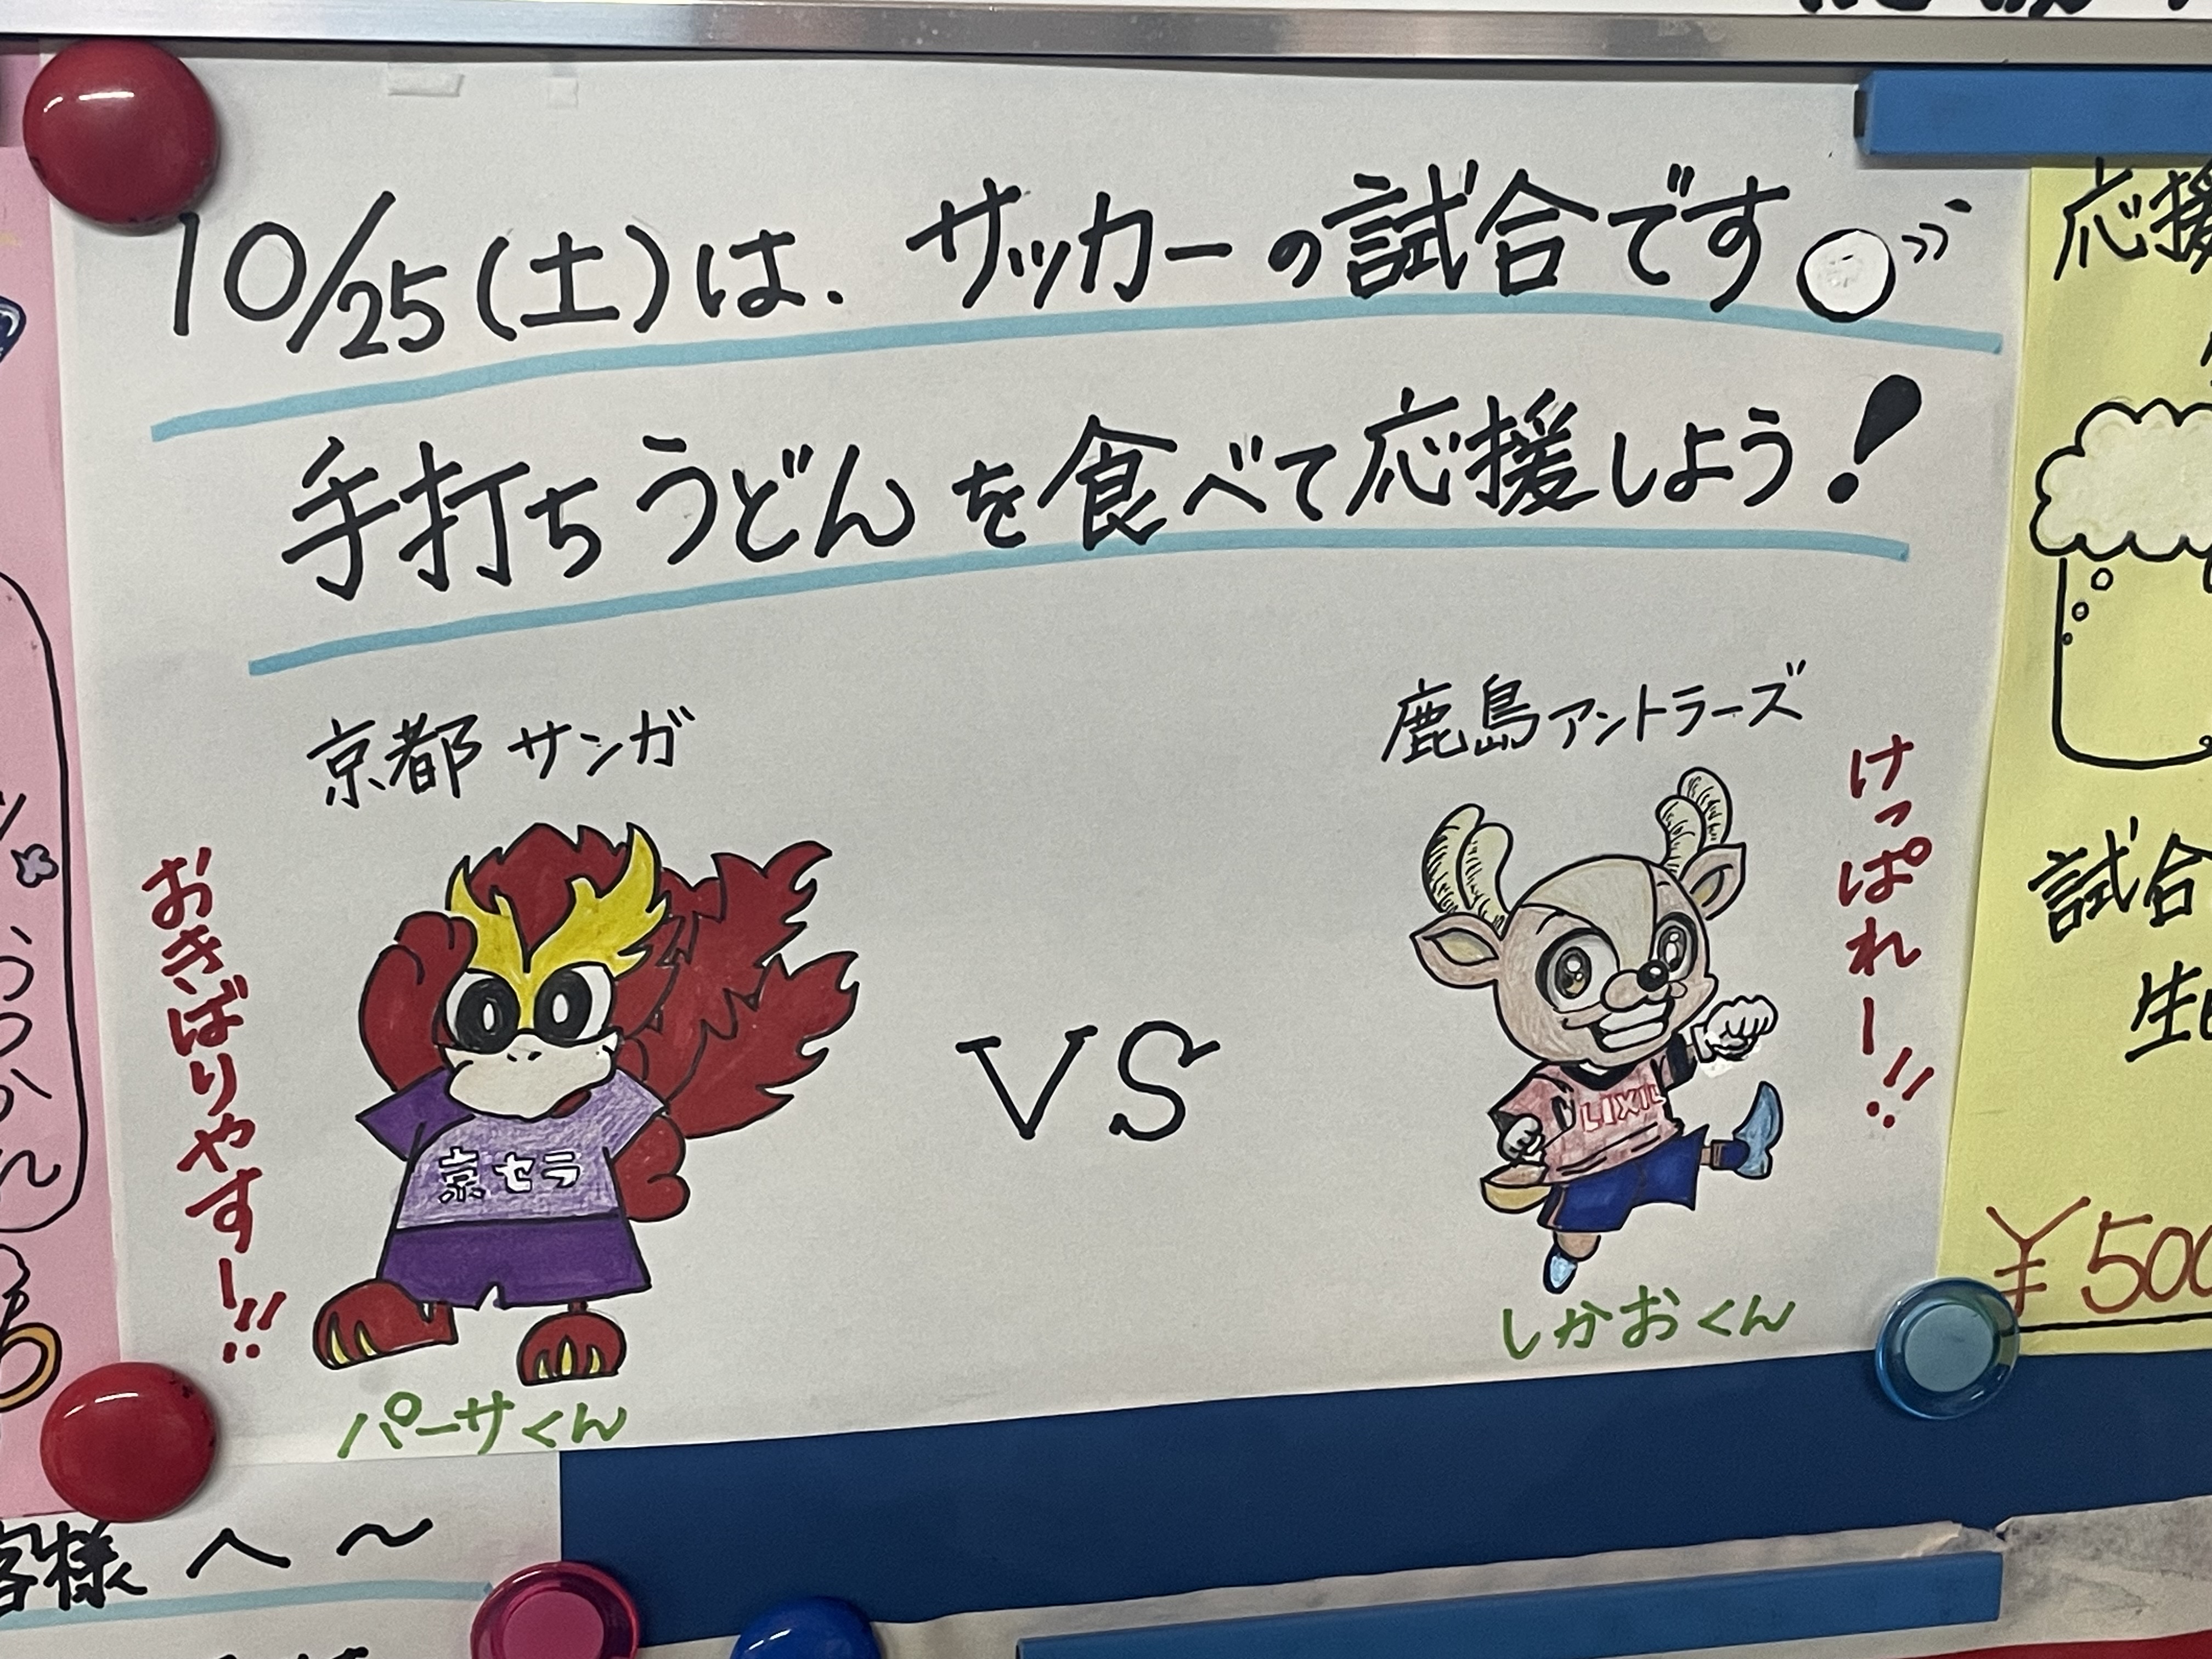 10/25(土)は、サッカーの試合です
手打ちうどんを食べて応援しよう!
京都サンガ
おきばりやすー!!
京セラ
パーサくん
VS
鹿島アントラーズ
けっぱれー!!
LIXIL
しかおくん
応援
試合
生
¥500
客様へ〜